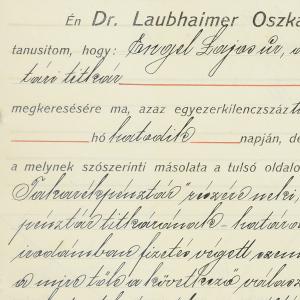 Én Dr. Laubhaimer Oszka
tanusitom, hogy: Engel Lajos úr, a
tári titkár
megkeresésére ma, azaz egyezerkilenczszáz t
hó hatodik napján, de
a melynek szószerinti másolata a tulsó oldalo
Takarékpénztár" részére neki,
pénztár titkárának - határo
irodámban fizetés végett szem
a mire tőle a következő válas